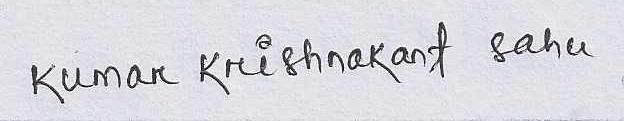 Kumar Krishnakant Sahu